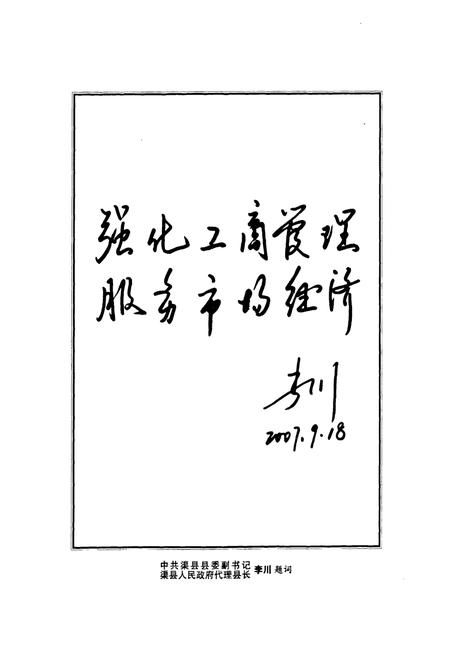 强化工商管理
服务市场经济
李川
2007.9.18
中共渠县县委副书记
渠县人民政府代理县长 李川 题词